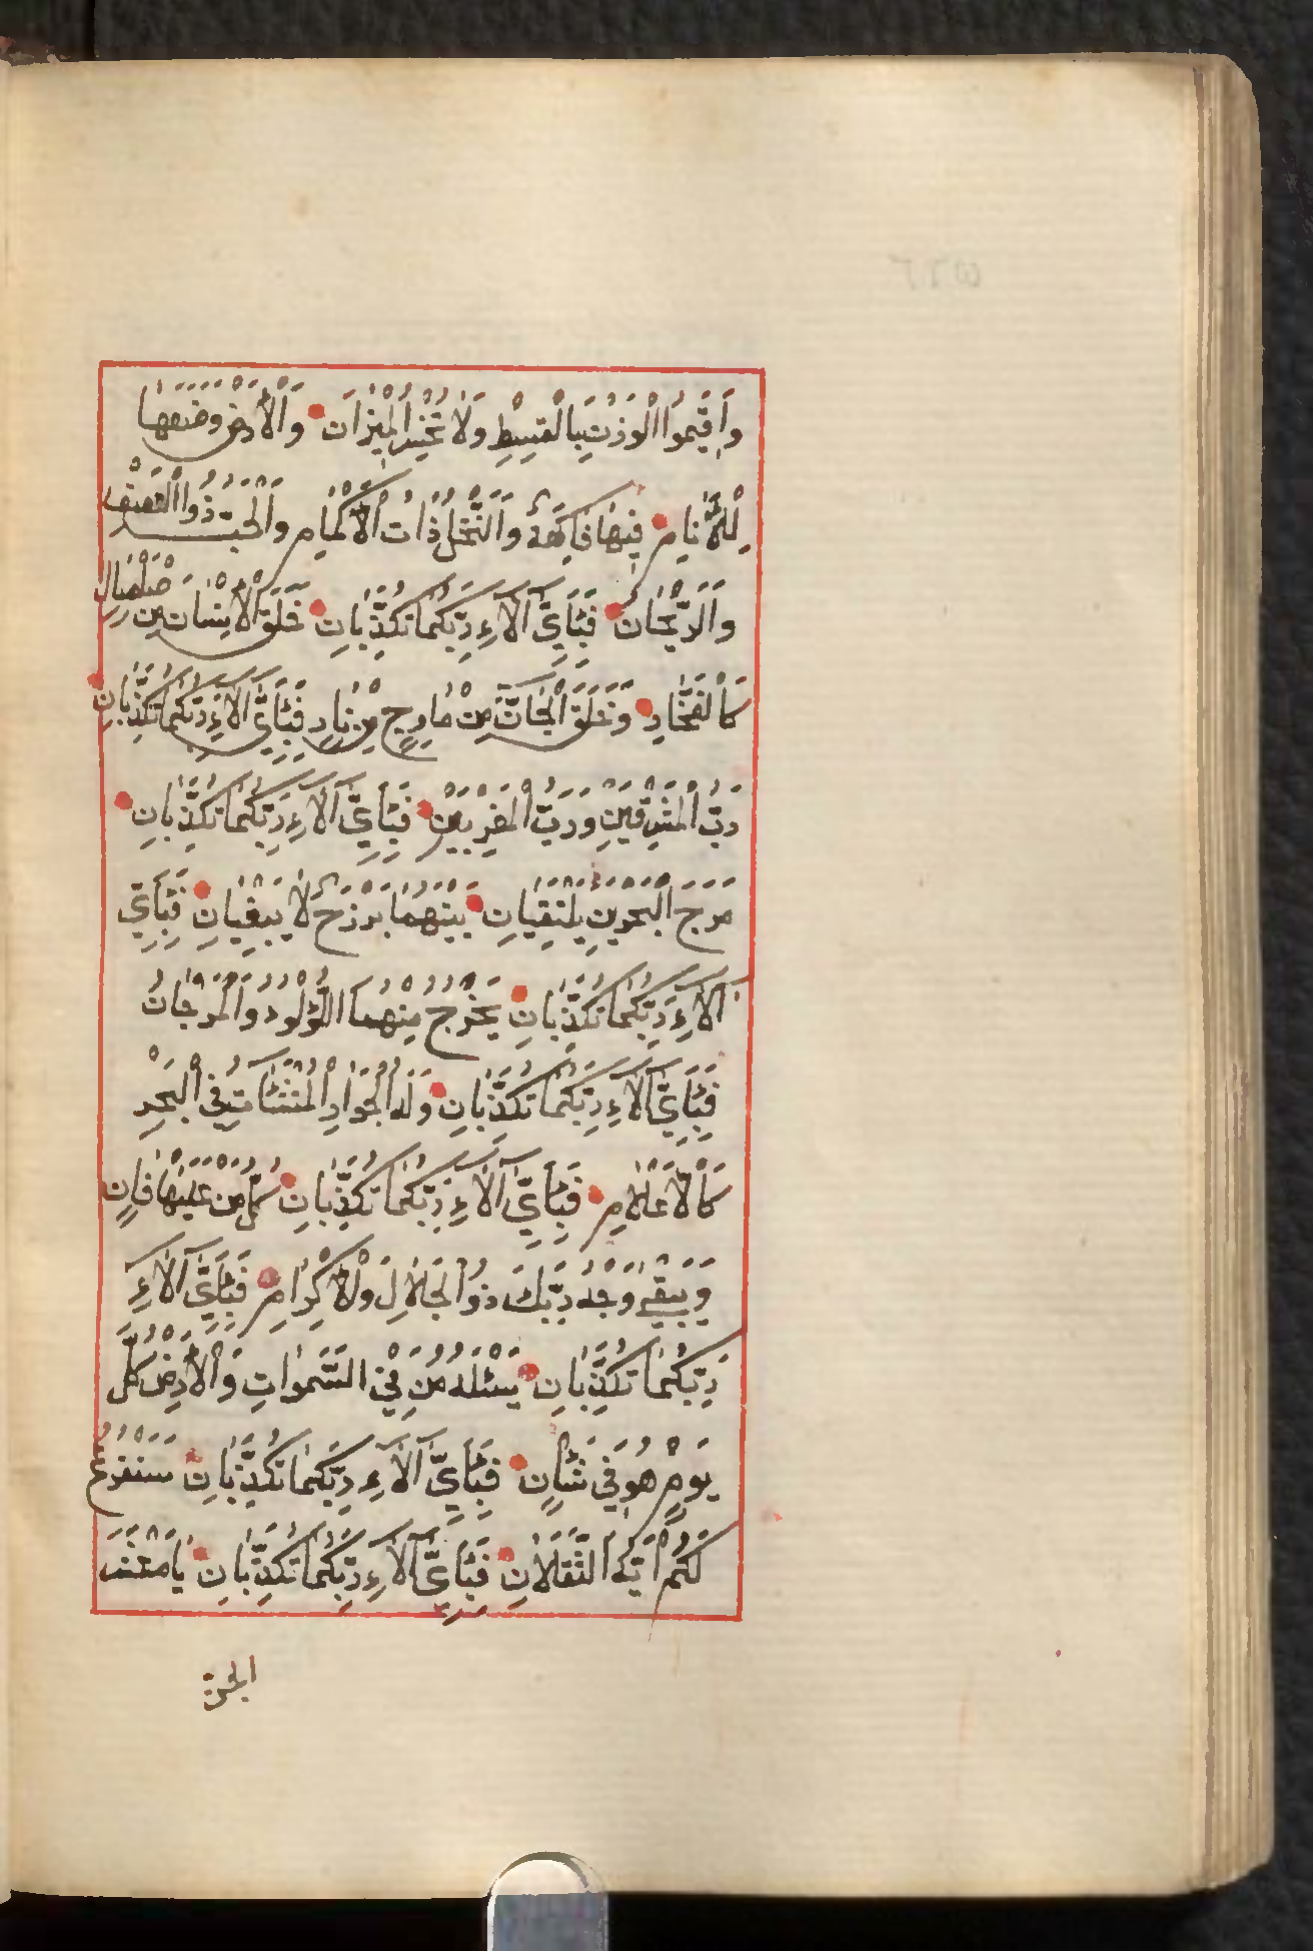 وَاَقِيمُوا الْوَزْنَ بِالْقِسْطِ وَلَا تُخْسِرُ الْمِيزَانَ وَالْاَرْضَ وَضَعَهَا
لِلْاَنَامِ فِيهَا فَاكِهَةٌ وَالنَّخْلُ ذَاتُ الْاَكْمَامِ وَالْحَبُّ ذُوا الْعَصْفِ
وَالرَّيْحَانُ فَبِاَيِّ آلَاءِ رَبِّكُمَا تُكَذِّبَانِ خَلَقَ الْاِنْسَانَ مِنْ صَلْصَالٍ
كَالْفَخَّارِ وَخَلَقَ الْجَانَّ مِنْ مَارِجٍ مِنْ نَارٍ فَبِاَيِّ آلَاءِ رَبِّكُمَا تُكَذِّبَانِ
رَبُّ الْمَشْرِقَيْنِ وَرَبُّ الْمَغْرِبَيْنِ فَبِاَيِّ آلَاءِ رَبِّكُمَا تُكَذِّبَانِ
مَرَجَ الْبَحْرَيْنِ يَلْتَقِيَانِ بَيْنَهُمَا بَرْزَخٌ لَا يَبْغِيَانِ فَبِاَيِّ
آلَاءِ رَبِّكُمَا تُكَذِّبَانِ يَخْرُجُ مِنْهُمَا اللُّؤْلُؤُ وَالْمَرْجَانُ
فَبِاَيِّ آلَاءِ رَبِّكُمَا تُكَذِّبَانِ وَلَهُ الْجَوَارِ الْمُنْشَئَاتُ فِي الْبَحْرِ
كَالْاَعْلَامِ فَبِاَيِّ آلَاءِ رَبِّكُمَا تُكَذِّبَانِ كُلُّ مَنْ عَلَيْهَا فَانٍ
وَيَبْقَى وَجْهُ رَبِّكَ ذُو الْجَلَالِ وَلْاِكْرَامِ فَبِاَيِّ آلَاءِ
رَبِّكُمَا تُكَذِّبَانِ يَسْئَلُهُ مَنْ فِي السَّمٰوَاتِ وَالْاَرْضِ كُلَّ
يَوْمٍ هُوَ فِي شَاْنٍ فَبِاَيِّ آلَاءِ رَبِّكُمَا تُكَذِّبَانِ سَنَفْرُغُ
لَكُمْ اَيُّهَ الثَّقَلَانِ فَبِاَيِّ آلَاءِ رَبِّكُمَا تُكَذِّبَانِ يَا مَعْشَرَ
الجن